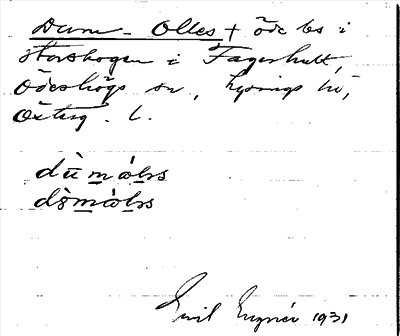 Dum-Olles + öde ls i
storskogen i Fagerhult,
Ödeshögs sn, Lysings hd,
Österg. L.
dù̄màl̥s
dò̤màl̥s
Emil 1931